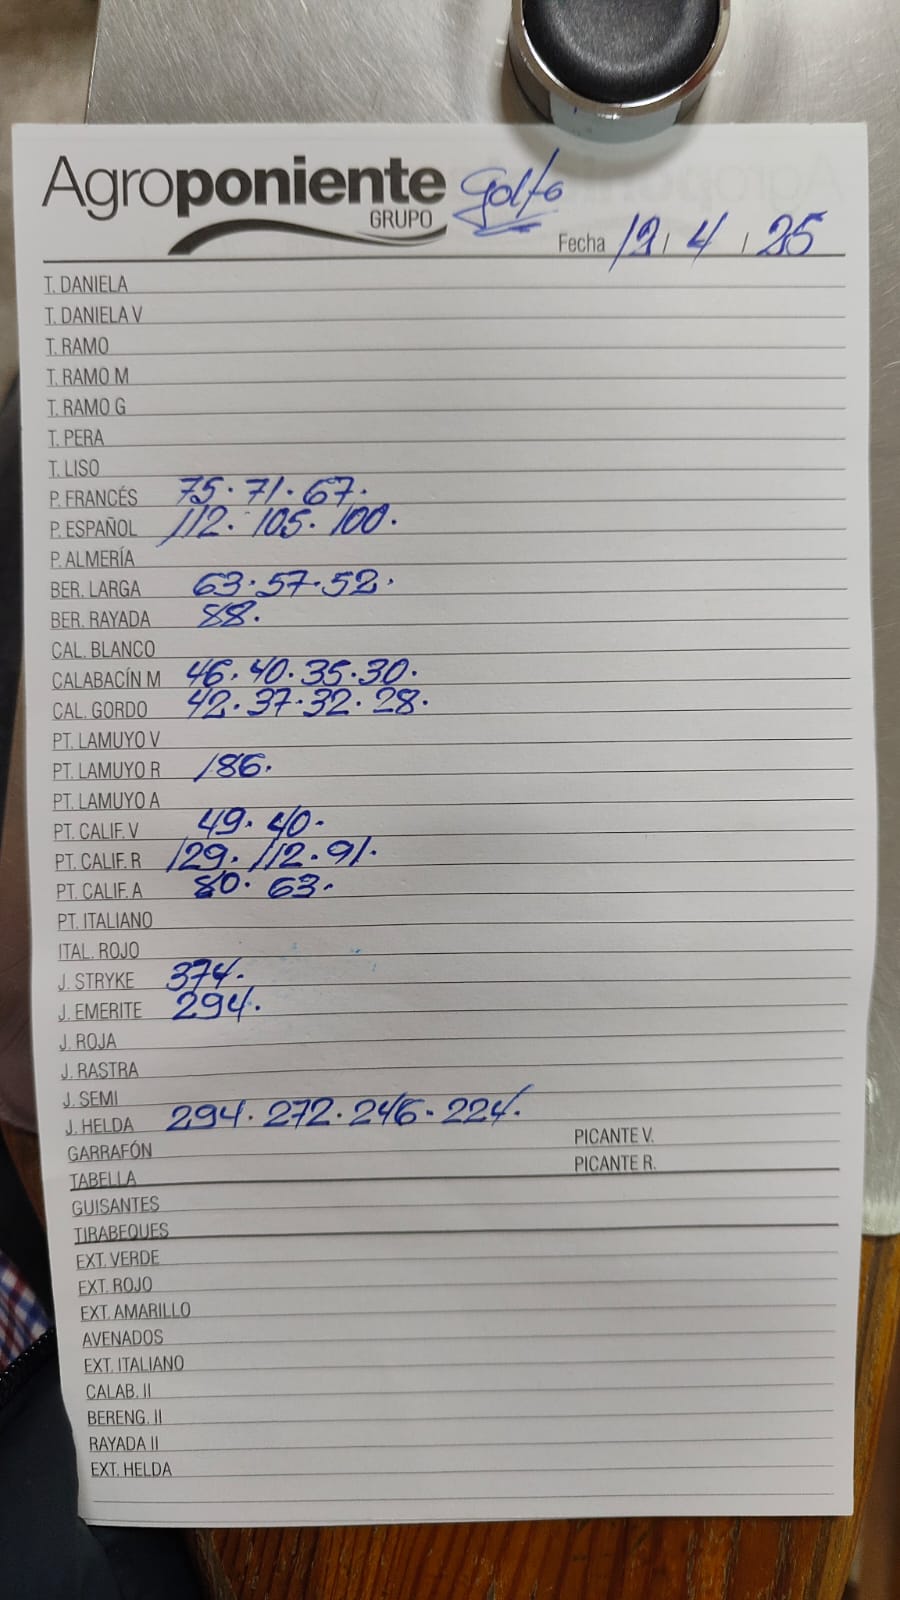 Agroponiente Golfo
GRUPO
Fecha 12 / 4 / 25
T. DANIELA
T. DANIELA V
T. RAMO
T. RAMO M
T. RAMO G
T. PERA
T. LISO
P. FRANCÉS 75. 71. 67.
P. ESPAÑOL 112. 105. 100.
P. ALMERÍA
BER. LARGA 63. 57. 52.
BER. RAYADA 88.
CAL. BLANCO
CALABACÍN M 46. 40. 35. 30.
CAL. GORDO 42. 37. 32. 28.
PT. LAMUYO V
PT. LAMUYO R 186.
PT. LAMUYO A
PT. CALIF. V 49. 40.
PT. CALIF. R 129. 112. 91.
PT. CALIF. A 80. 63.
PT. ITALIANO
ITAL. ROJO
J. STRYKE 374.
J. EMERITE 294.
J. ROJA
J. RASTRA
J. SEMI
J. HELDA 294. 272. 246. 224.
GARRAFÓN PICANTE V.
TABELLA PICANTE R.
GUISANTES
TIRABEQUES
EXT. VERDE
EXT. ROJO
EXT. AMARILLO
AVENADOS
EXT. ITALIANO
CALAB. II
BERENG. II
RAYADA II
EXT. HELDA